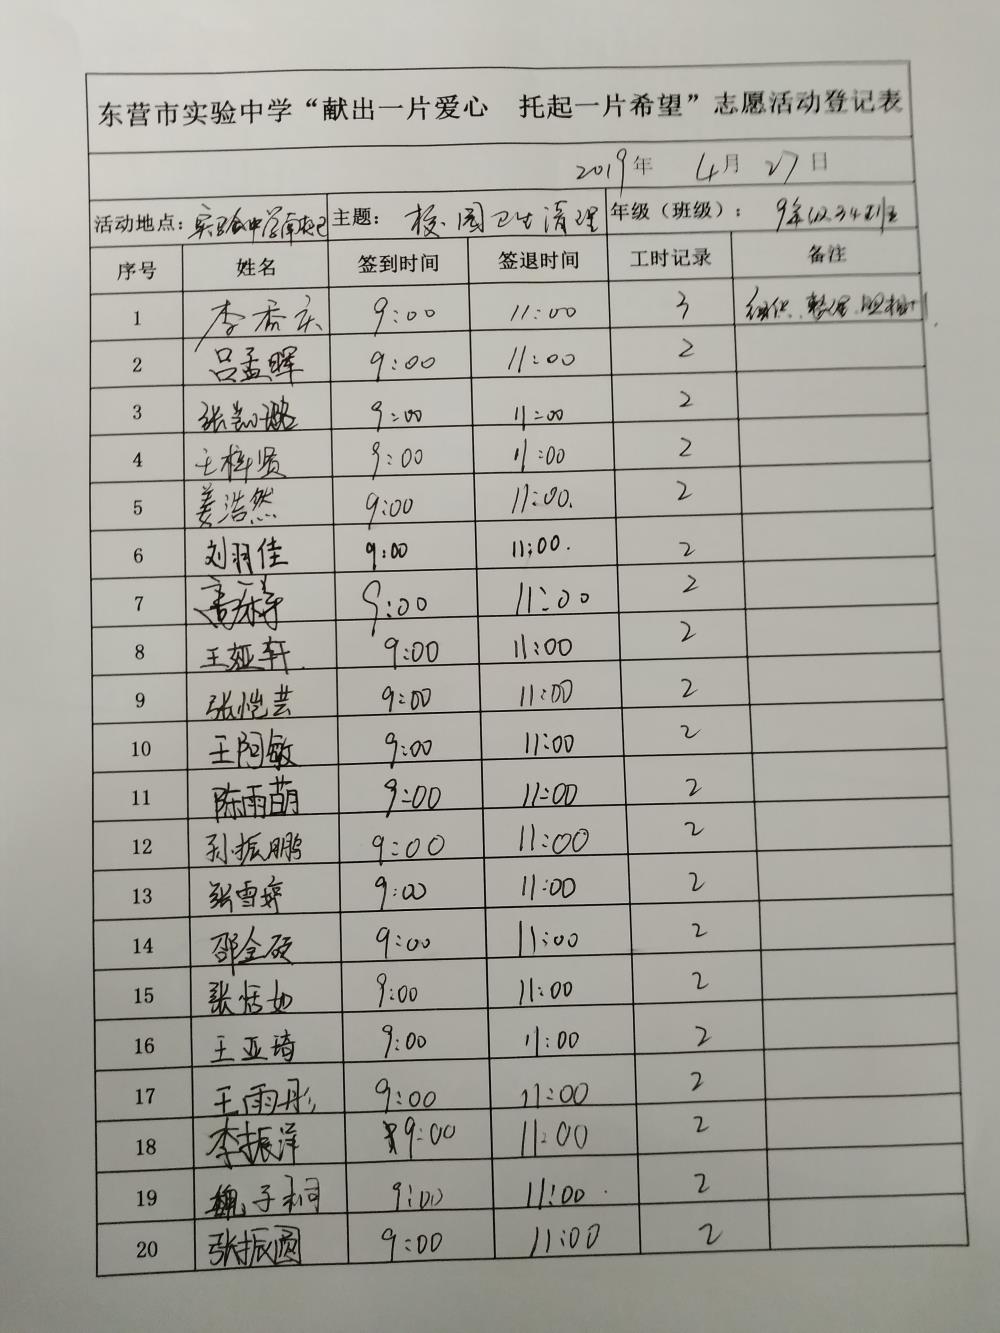 东营市实验中学“献出一片爱心 托起一片希望”志愿活动登记表
2019年 4月 27日
活动地点：实验中学南校 主题：校园卫生清理 年级（班级）：9年级34班
序号 姓名 签到时间 签退时间 工时记录 备注
1 李香庆 9:00 11:00 3 组织、整理、照相
2 吕孟晖 9:00 11:00 2
3 张凯璐 9:00 11:00 2
4 王梓贤 9:00 11:00 2
5 姜浩然 9:00 11:00. 2
6 刘羽佳 9:00 11:00. 2
7 9:00 11:00 2
8 王娅轩 9:00 11:00 2
9 张恺芸 9:00 11:00 2
10 王阿敏 9:00 11:00 2
11 陈雨萌 9:00 11:00 2
12 孙振鹏 9:00 11:00 2
13 张雪婷 9:00 11:00 2
14 邵全硕 9:00 11:00 2
15 张恬如 9:00 11:00 2
16 王亚琦 9:00 11:00 2
17 王雨彤 9:00 11:00 2
18 李振洋 9:00 11:00 2
19 子桐 9:00 11:00 2
20 张振圆 9:00 11:00 2